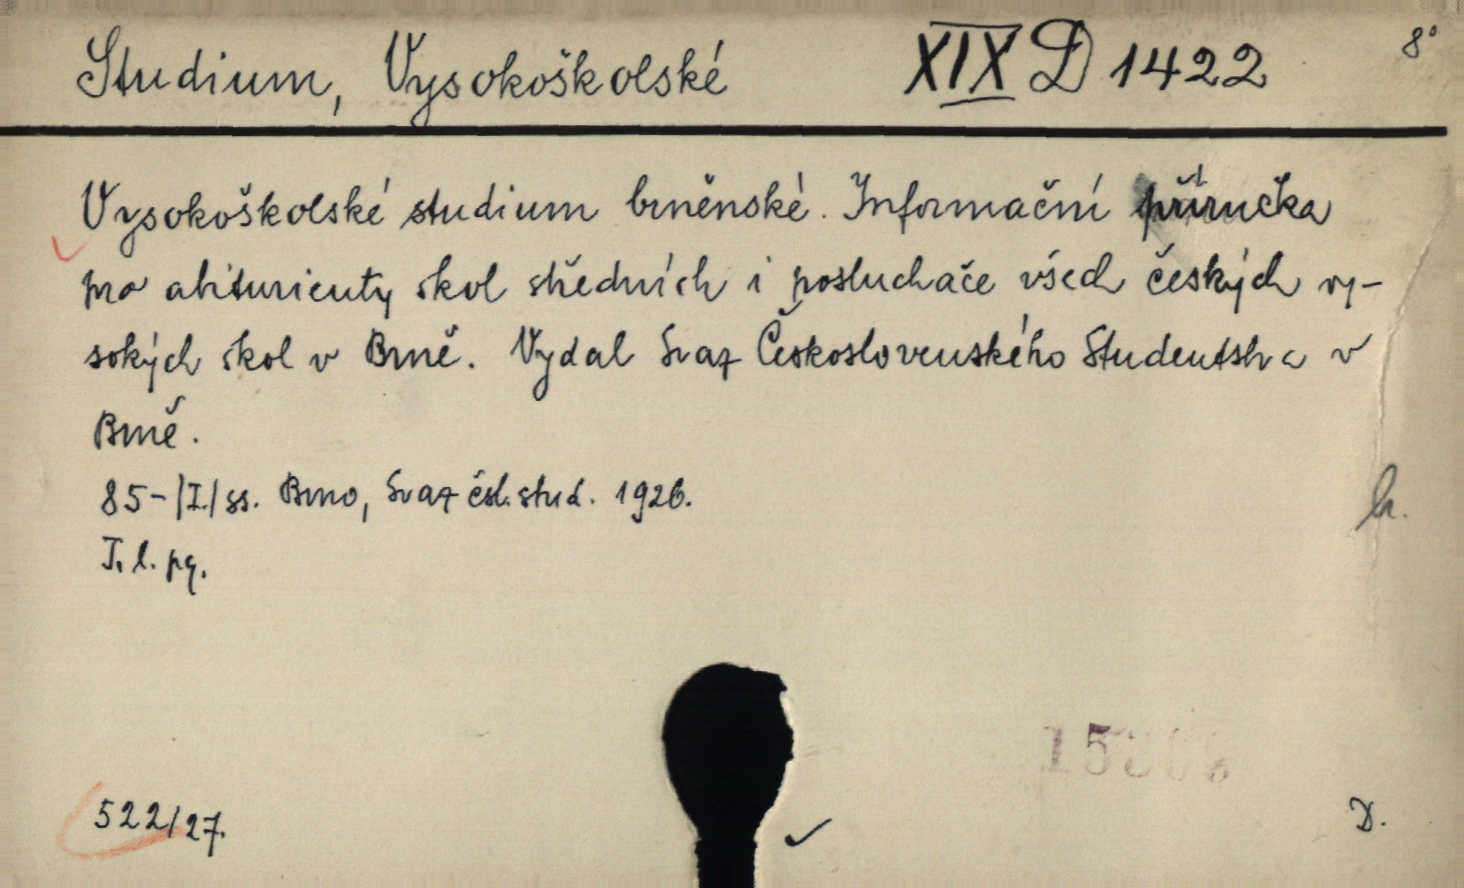 Studium, Vysokoškolské XIX D 1422 8°
Vysokoškolské studium brněnské. Informační příručka
pro abiturienty škol středních i posluchače všech českých vy-
sokých škol v Brně. Vydal Svaz Československého Studentstva v
Brně.
85-/I./ss. Brno, Svaz čsl. stud. 1926.
T. l. pq.
522/27.
D.